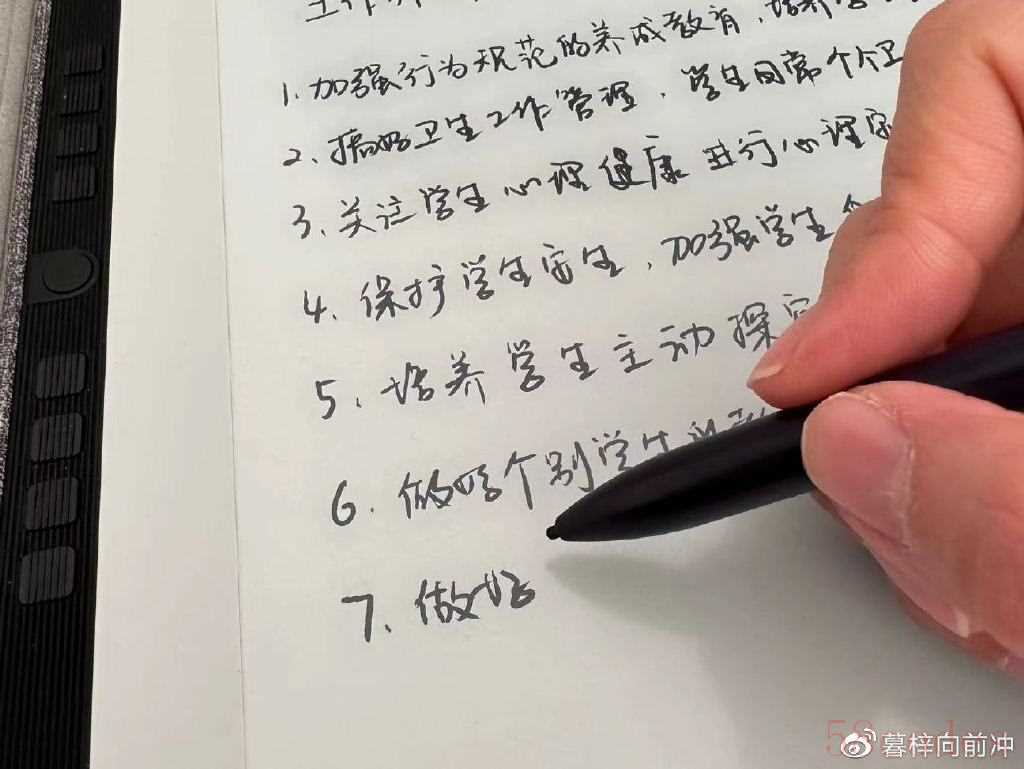 工作
1.加强行为规范的养成教育,培养学
2、搞好卫生工作管理,学生日常个个卫
3、关注学生心理健康 进行心理
4.保护学生安生,加强学生
5.培养学生主动探究
6.做好个别学生
7.做好
@暮梓向前冲